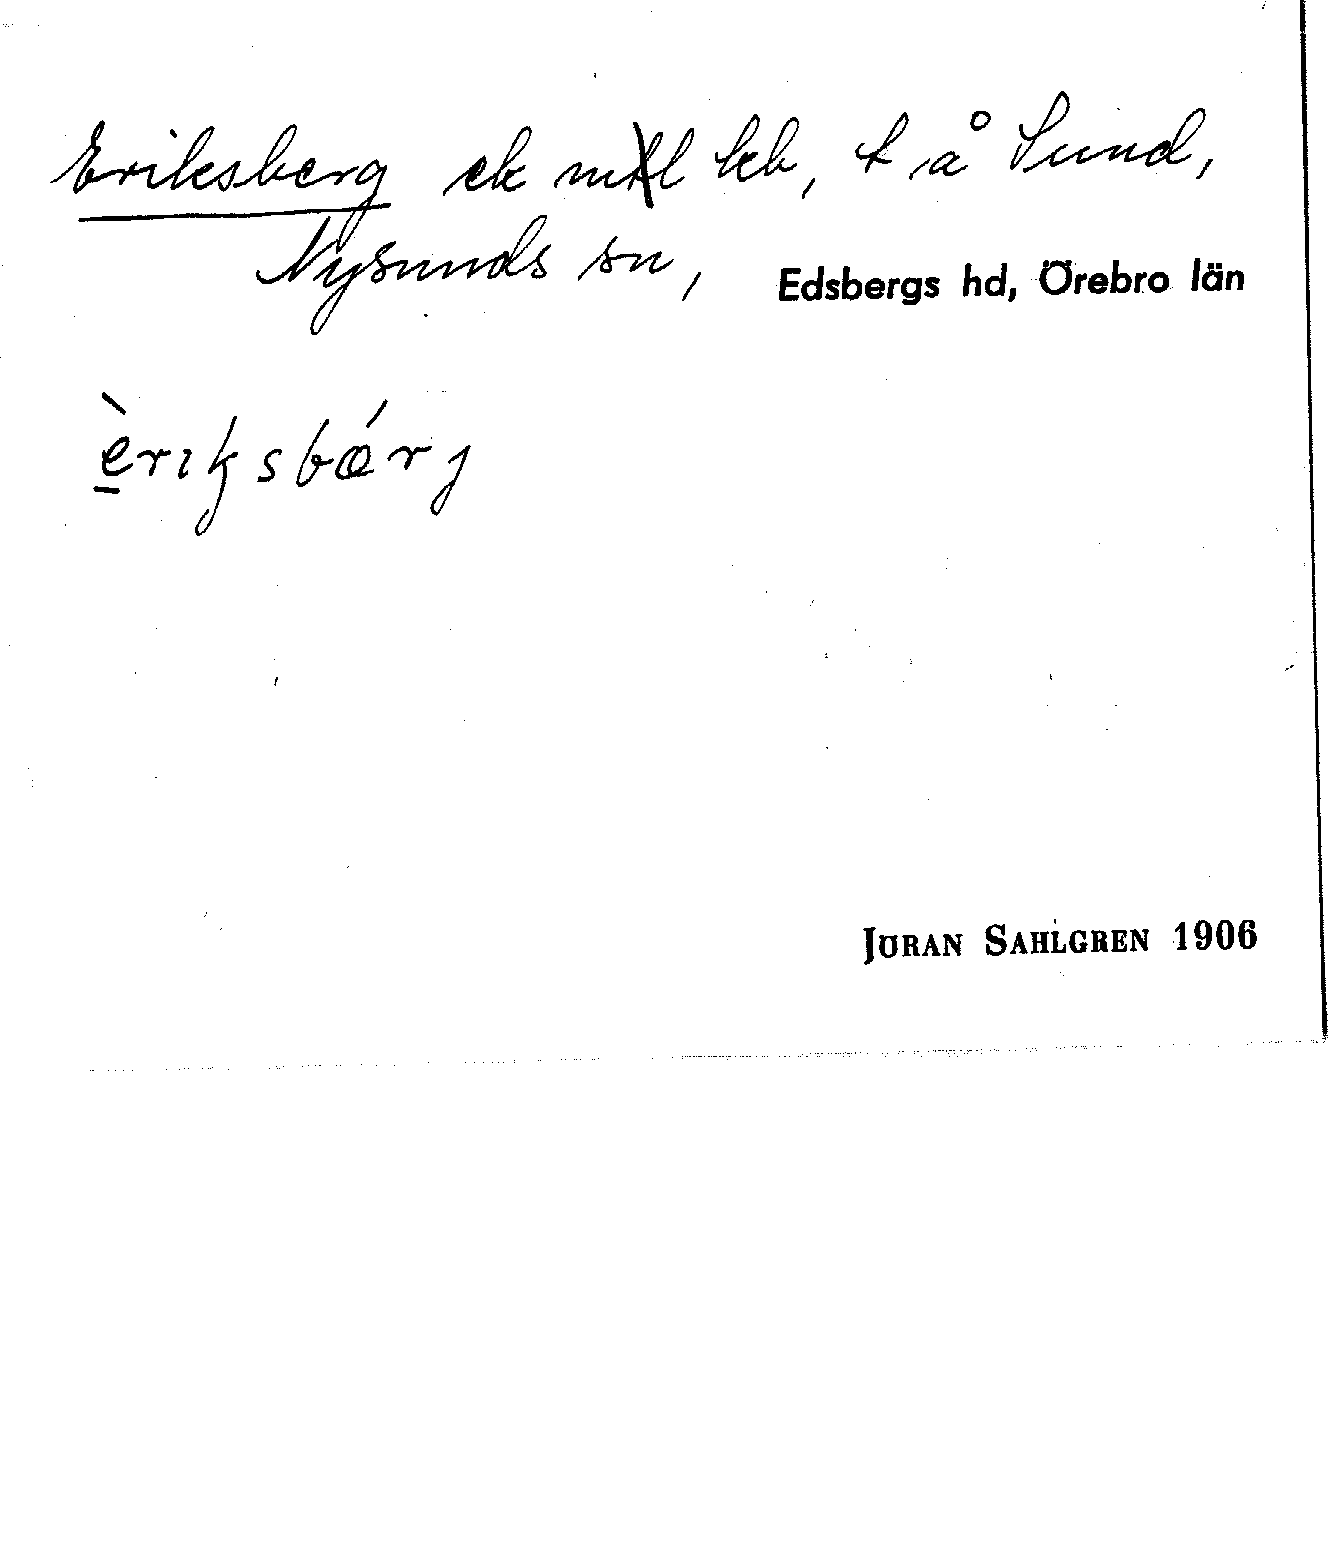 Eriksberg ek mtl leb, t å Sund,
Nysunds sn, Edsbergs hd, Örebro län
èriksbærj
JÖRAN SAHLGREN 1906